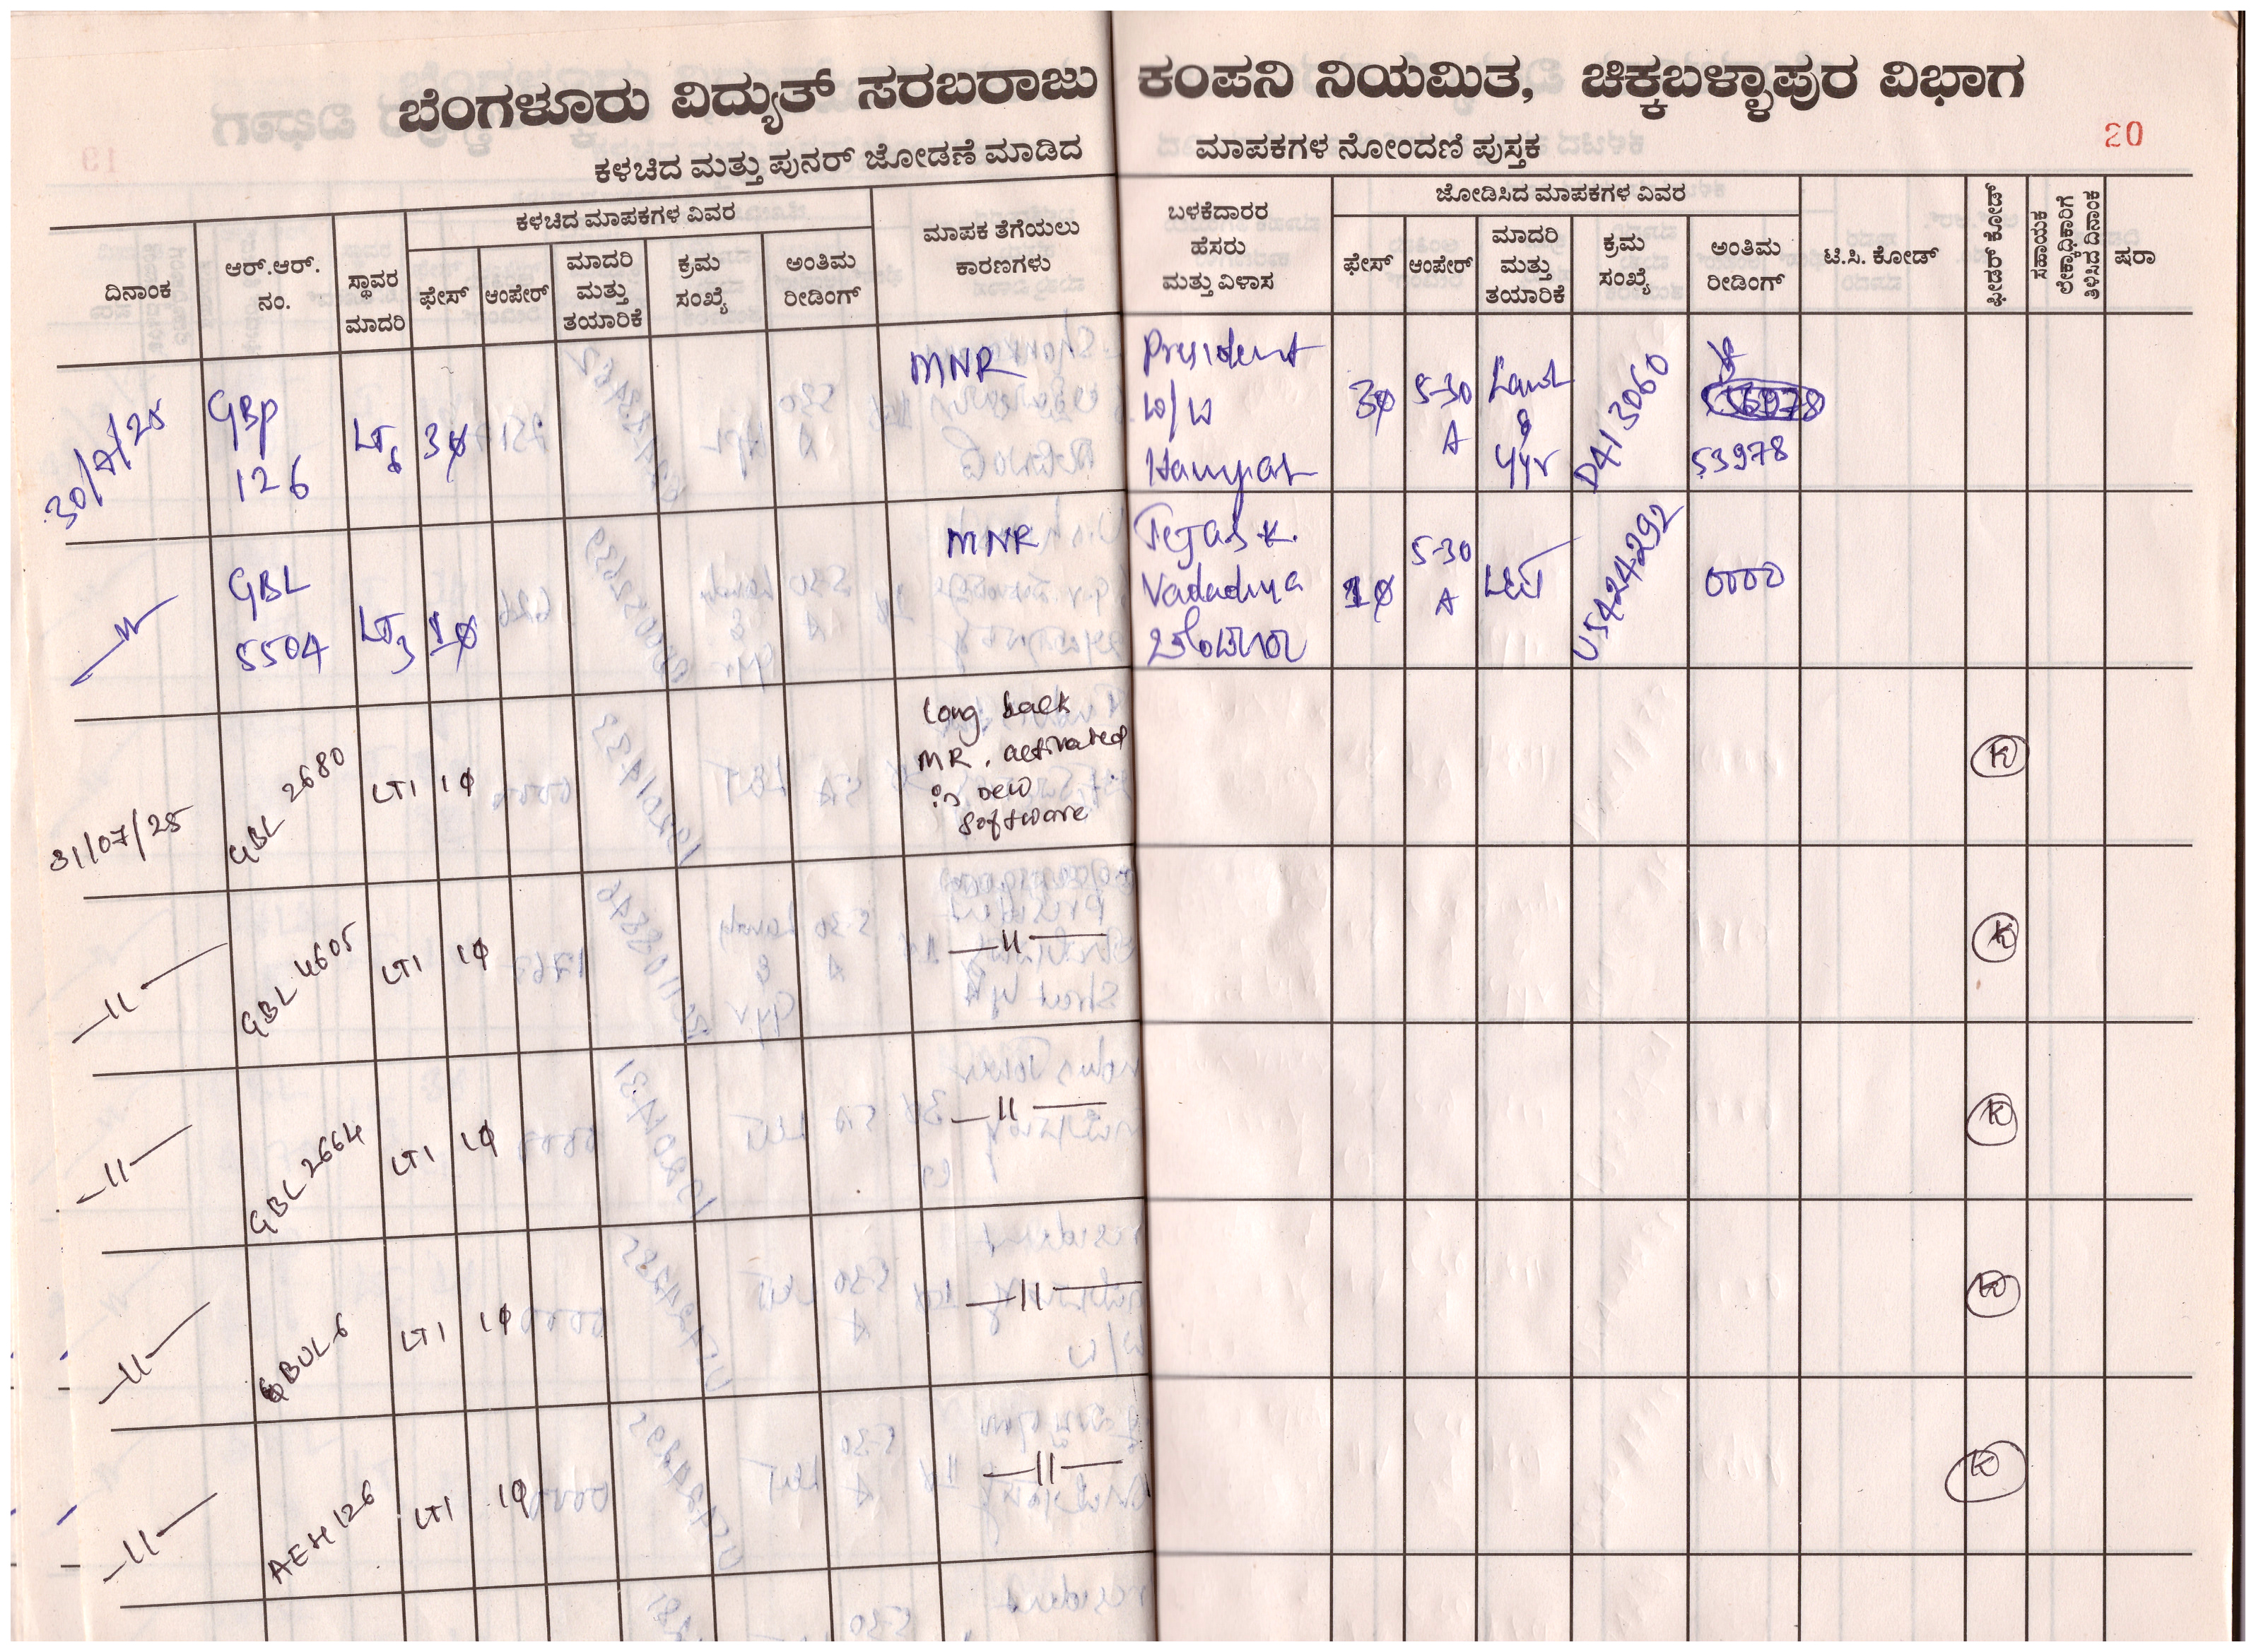 ಬೆಂಗಳೂರು ವಿದ್ಯುತ್ ಸರಬರಾಜು ಕಂಪನಿ ನಿಯಮಿತ, ಚಿಕ್ಕಬಳ್ಳಾಪುರ ವಿಭಾಗ
ಕಳಚಿದ ಮತ್ತು ಪುನರ್ ಜೋಡಣೆ ಮಾಡಿದ ಮಾಪಕಗಳ ನೋಂದಣಿ ಪುಸ್ತಕ
20
ದಿನಾಂಕ
ಆರ್.ಆರ್.
ನಂ.
ಸ್ಥಾವರ
ಮಾದರಿ
ಕಳಚಿದ ಮಾಪಕಗಳ ವಿವರ
ಫೇಸ್
ಆಂಪೇರ್
ಮಾದರಿ
ಮತ್ತು
ತಯಾರಿಕೆ
ಕ್ರಮ
ಸಂಖ್ಯೆ
ಅಂತಿಮ
ರೀಡಿಂಗ್
ಮಾಪಕ ತೆಗೆಯಲು
ಕಾರಣಗಳು
ಬಳಕೆದಾರರ
ಹೆಸರು
ಮತ್ತು ವಿಳಾಸ
ಜೋಡಿಸಿದ ಮಾಪಕಗಳ ವಿವರ
ಫೇಸ್
ಆಂಪೇರ್
ಮಾದರಿ
ಮತ್ತು
ತಯಾರಿಕೆ
ಕ್ರಮ
ಸಂಖ್ಯೆ
ಅಂತಿಮ
ರೀಡಿಂಗ್
ಟಿ.ಸಿ. ಕೋಡ್
ಫೀಡರ್ ಕೋಡ್
ಸಹಾಯಕ
ಲೆಕ್ಕಾಧಿಕಾರಿಗೆ
ತಿಳಿಸಿದ ದಿನಾಂಕ
ಷರಾ
30/7/25
GBP
126
LT6
3φ
MNR
President
W/W
Hampas
3φ
5-30
A
Land
&
Gyr
D413060
53978
—11—
GBL
5504
LT3
1φ
MNR
Tejas K.
Vadadhya
1φ
5-30
A
L&T
U5424292
0000
31/07/25
GBL 2680
LT1
1φ
Long back
MR. activated
in new
software
—11—
GBL 4605
LT1
1φ
—11—
—11—
GBL 2664
LT1
1φ
—11—
—11—
GBUL6
LT1
1φ
—11—
—11—
AEH 126
LT1
1φ
—11—